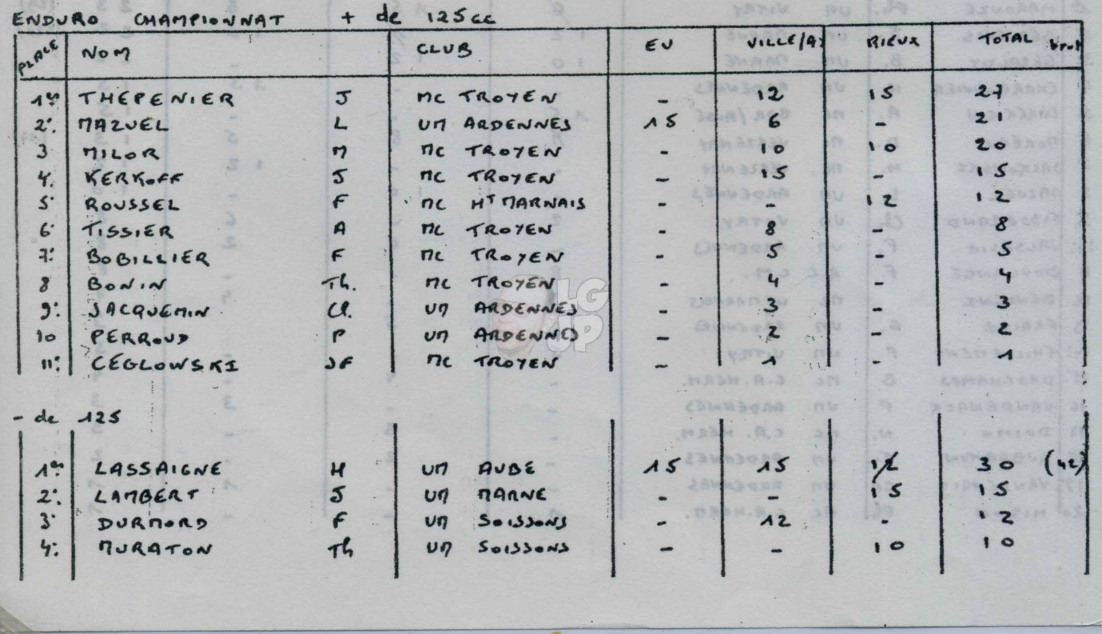 ENDURO CHAMPIONNAT + de 125cc
PLACE NOM CLUB EU VILLE/(A) RIEUX TOTAL brut
1er THEPENIER J MC TROYEN - 12 15 27
2e. MAZUEL L UM ARDENNES 15 6 - 21
3 MILOR M MC TROYEN - 10 10 20
4. KERKOFF J MC TROYEN - 15 - 15
5. ROUSSEL F MC Ht MARNAIS - - 12 12
6. TISSIER A MC TROYEN - 8 - 8
7. BOBILLIER F MC TROYEN - 5 - 5
8 BONIN Th. MC TROYEN - 4 - 4
9. JACQUEMIN Cl. UM ARDENNES - 3 - 3
10 PERROUD P UM ARDENNES - 2 - 2
11. CÉGLOWSKI JF MC TROYEN - 1 - 1
- de 125
1er LASSAIGNE H UM AUBE 15 15 12 30 (42)
2. LAMBERT J UM MARNE - - 15 15
3. DURMORD F UM SOISSONS - 12 - 12
4. MURATON Th UM SOISSONS - - 10 10
LG
UP